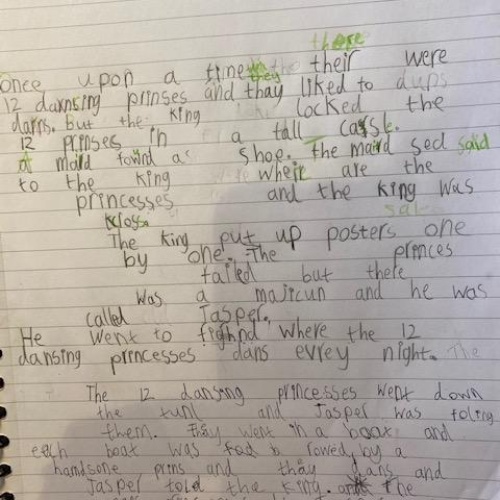 there
once upon a time their were
12 darnsing prinses and thay liked to
darns. but the king locked the
12 prinses in a tall carsle.
a maid fownd a shoe. the maid sed said
to the king where are the
princesses and the king was
kross
The king put up posters one
by one. The princes
failed but there
was a majicun and he was
called Jasper.
He went to fighnd where the 12
dansing princesses dans evrey night. The
The 12 dansing princesses went down
the tunl and Jasper was foling
them. Thay went in a boat and
each boat was rowed, by a
handsone prins and thay dans and
Jasper told the king. The